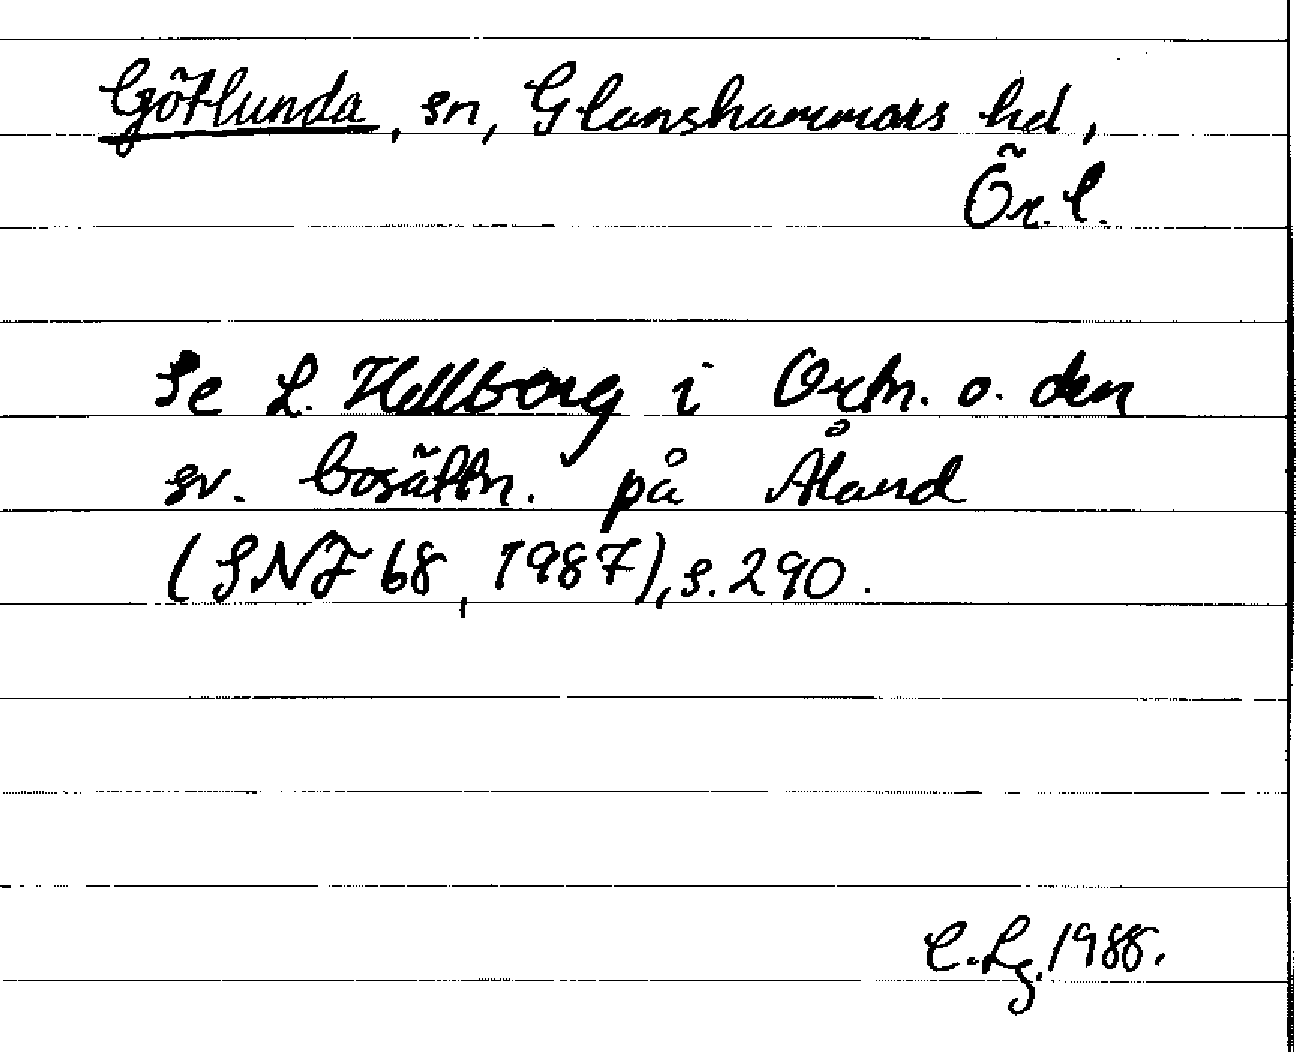 Götlunda, sn, Glanshammars hd,
Ör. l.
Se L. Hellberg i Ortn. o. den
sv. bosättn. på Åland
(SNF 68, 1987), s. 290.
C. Lg. 1988.